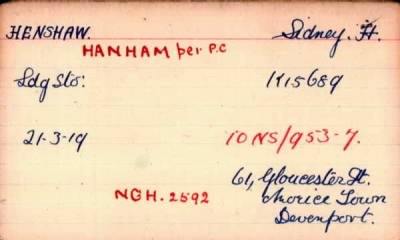 HENSHAW. Sidney. H.
HANHAM per P.C
Ldg Sto: K15689
21-3-19 10NS/953-7.
61, Gloucester St.
NGH. 2592 Morice Town
Devenport.